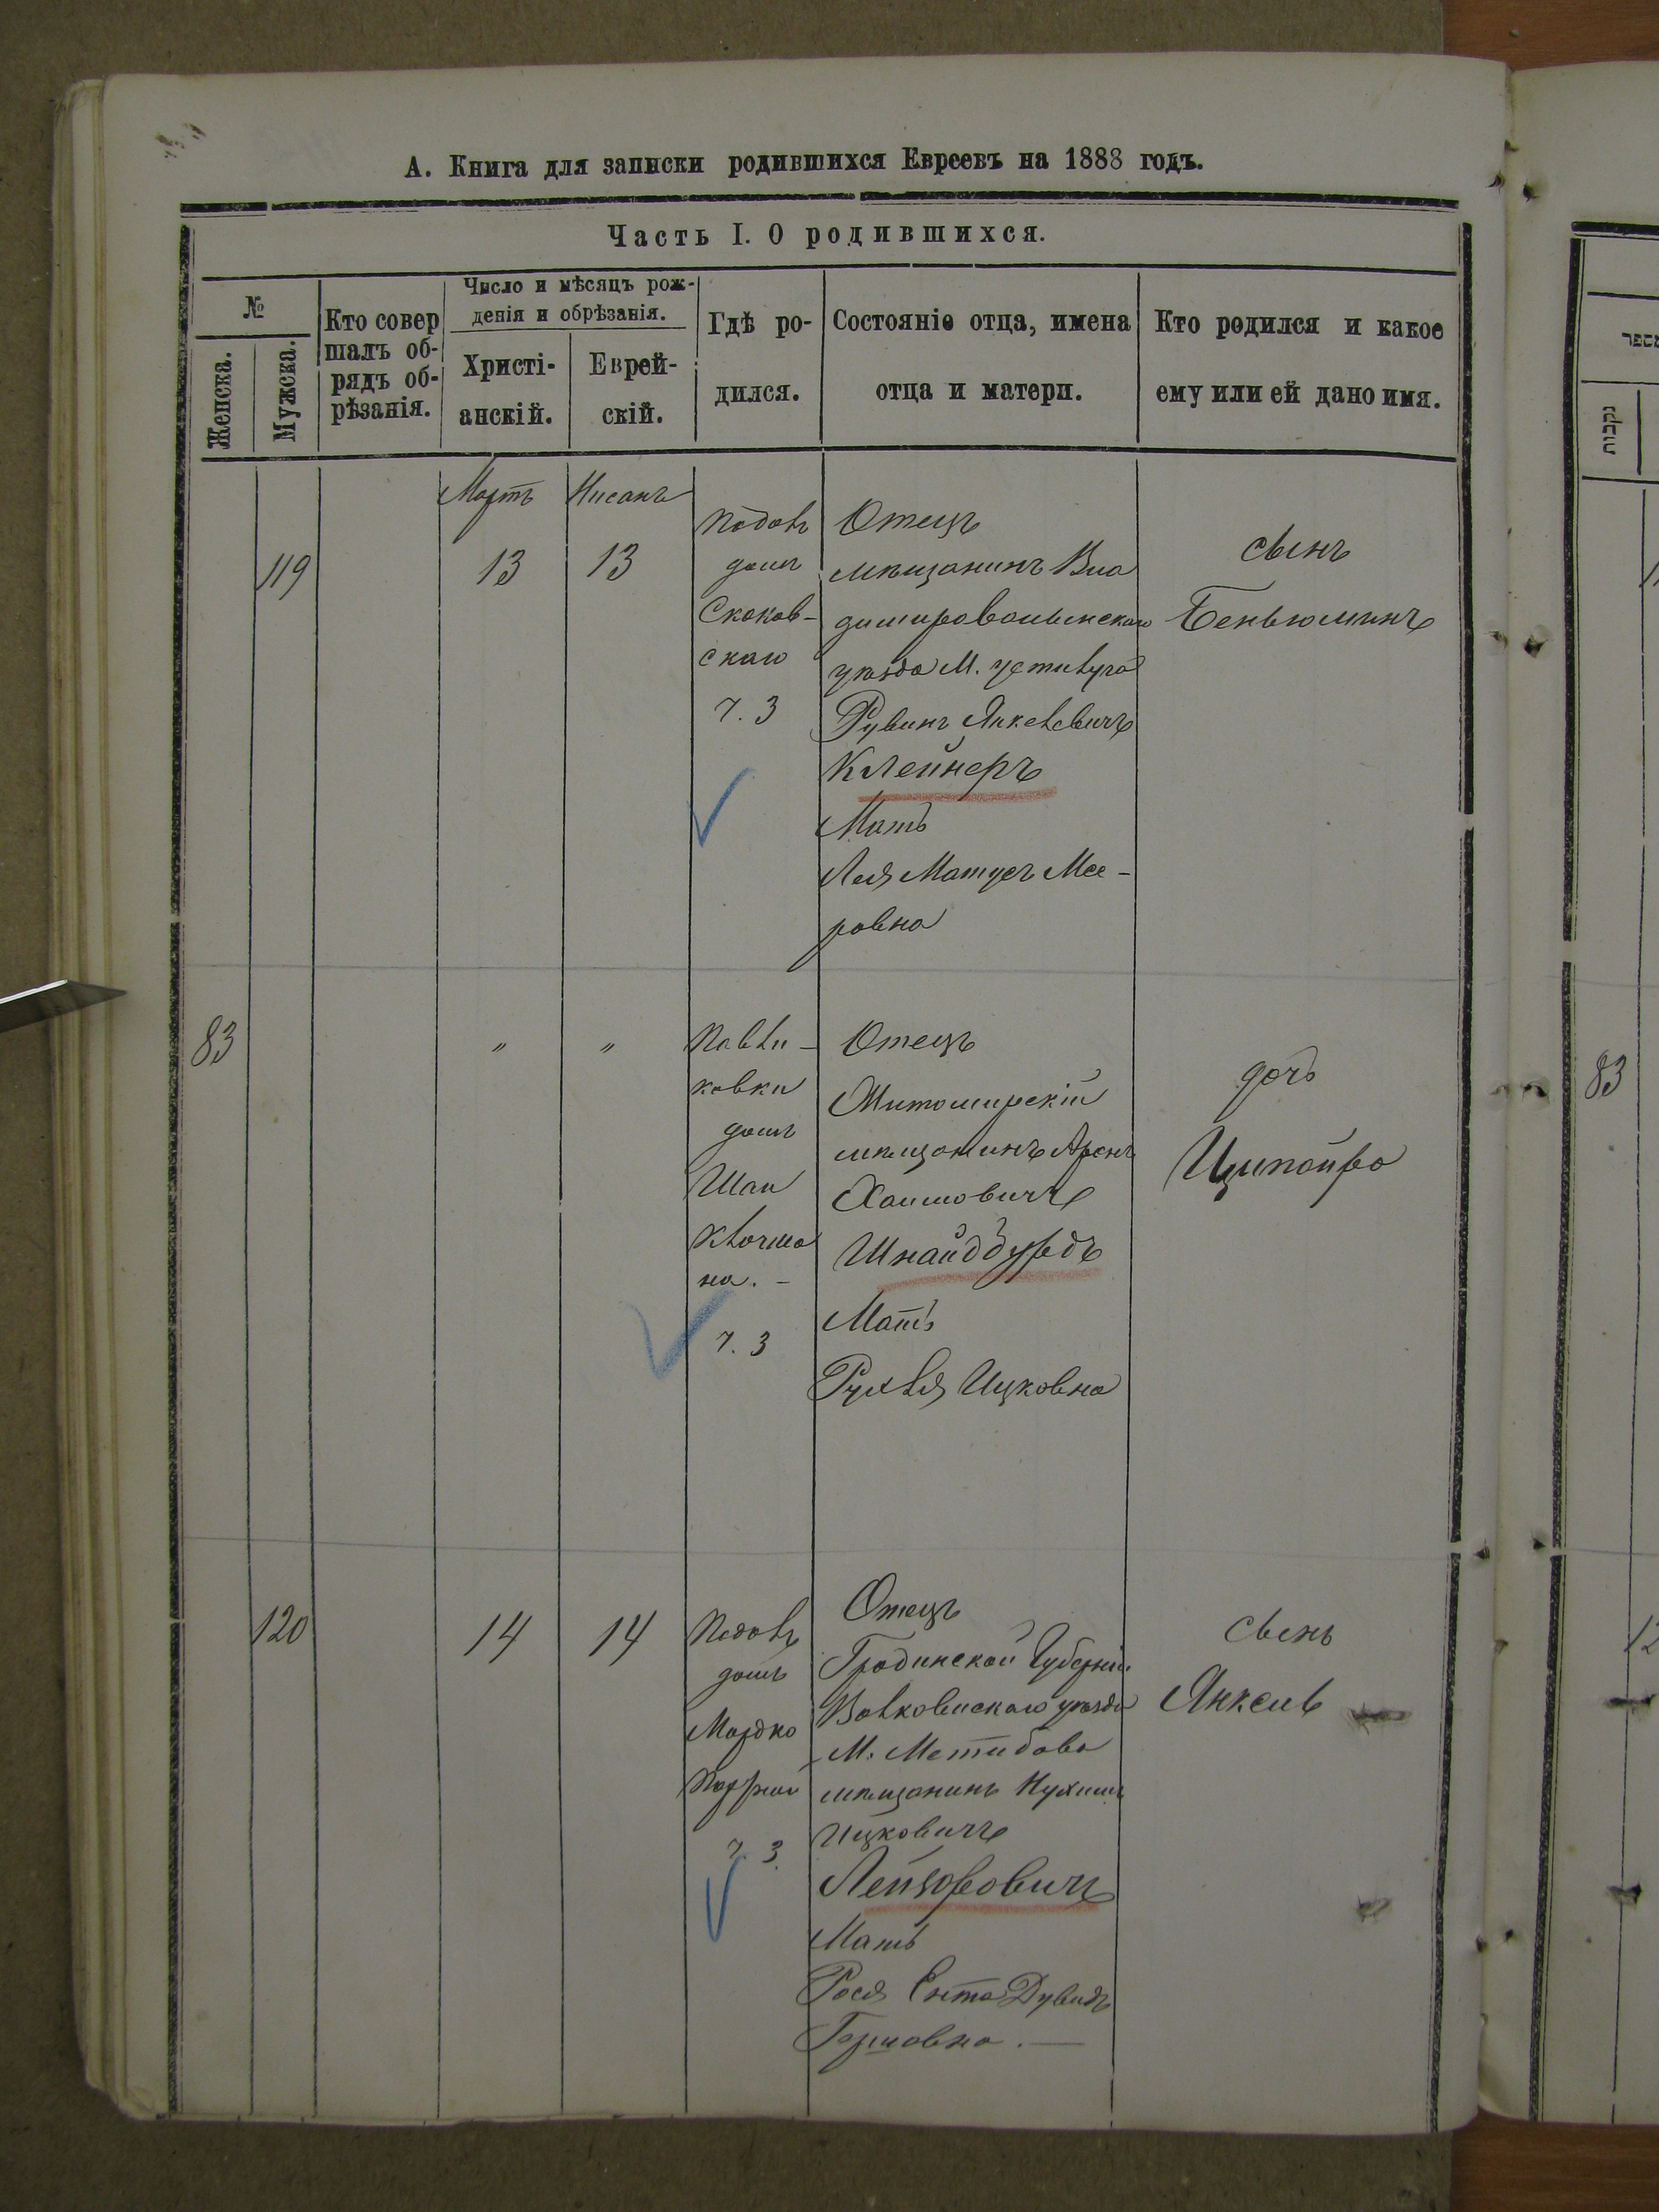 А. Книга для записки родившихся Евреевъ на 1888 годъ.
Часть I. О родившихся.
№
Женска.
Мужска.
Кто совер
шалъ об-
рядъ об-
рѣзанія.
Число и мѣсяцъ рож-
денія и обрѣзанія.
Христі-
анскій.
Еврей-
скій.
Гдѣ ро-
дился.
Состояніе отца, имена
отца и матери.
Кто родился и какое
ему или ей дано имя.
119
Мартъ
13
Нисанъ
13
домъ
Скоков-
скаго
ч. 3
Отецъ
мѣщанинъ Вла
димироволынскаго
уѣзда М. Устилуга
Рувинъ Янкелевичъ
Клейнеръ
Мать
Лея Матусъ Мее-
ровна
сынъ
Беньюминъ
83
"
"
Павли-
ковки
домъ
ч. 3
Отецъ
Житомирскій
мѣщанинъ Аронъ
Хаимовичъ
Шнайддурдъ
Мать
Рухля Ицковна
дочь
Ципойра
83
120
14
14
домъ
Мордко
ч. 3
Отецъ
Гродинской Губерніи
Волковискаго уѣзда
М. Мстибова
мѣщанинъ Нухимъ
Ицковичъ
Лейзоровичъ
Мать
Рося Ента Дувидъ
Гершовна. —
сынъ
Янкель
נקבות